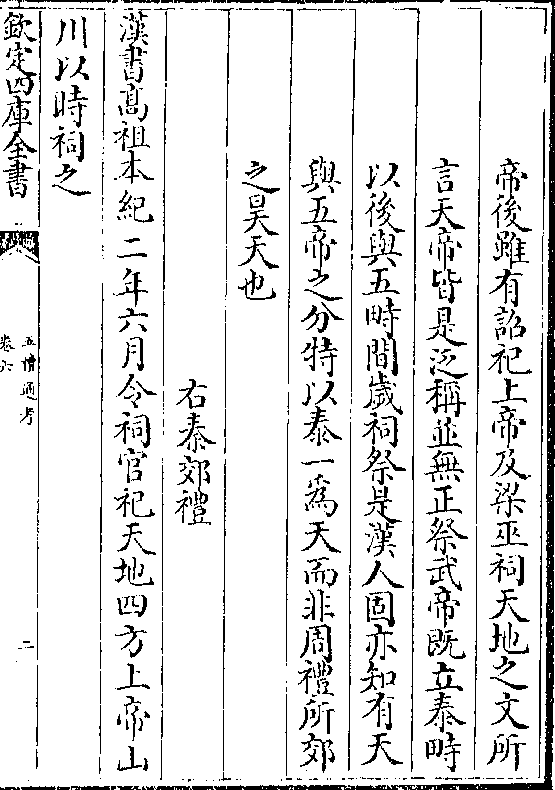 帝後雖有詔祀上帝及梁巫祠天地之文所
言天帝皆是泛稱並無正祭武帝既立泰畤
以後與五畤間歲祠祭是漢人固亦知有天
與五帝之分特以泰一為天而非周禮所郊
之昊天也
右秦郊禮
漢書髙祖本紀二年六月令祠官祀天地四方上帝山
川以時祠之
欽定四庫全書
五禮通考
卷六
二